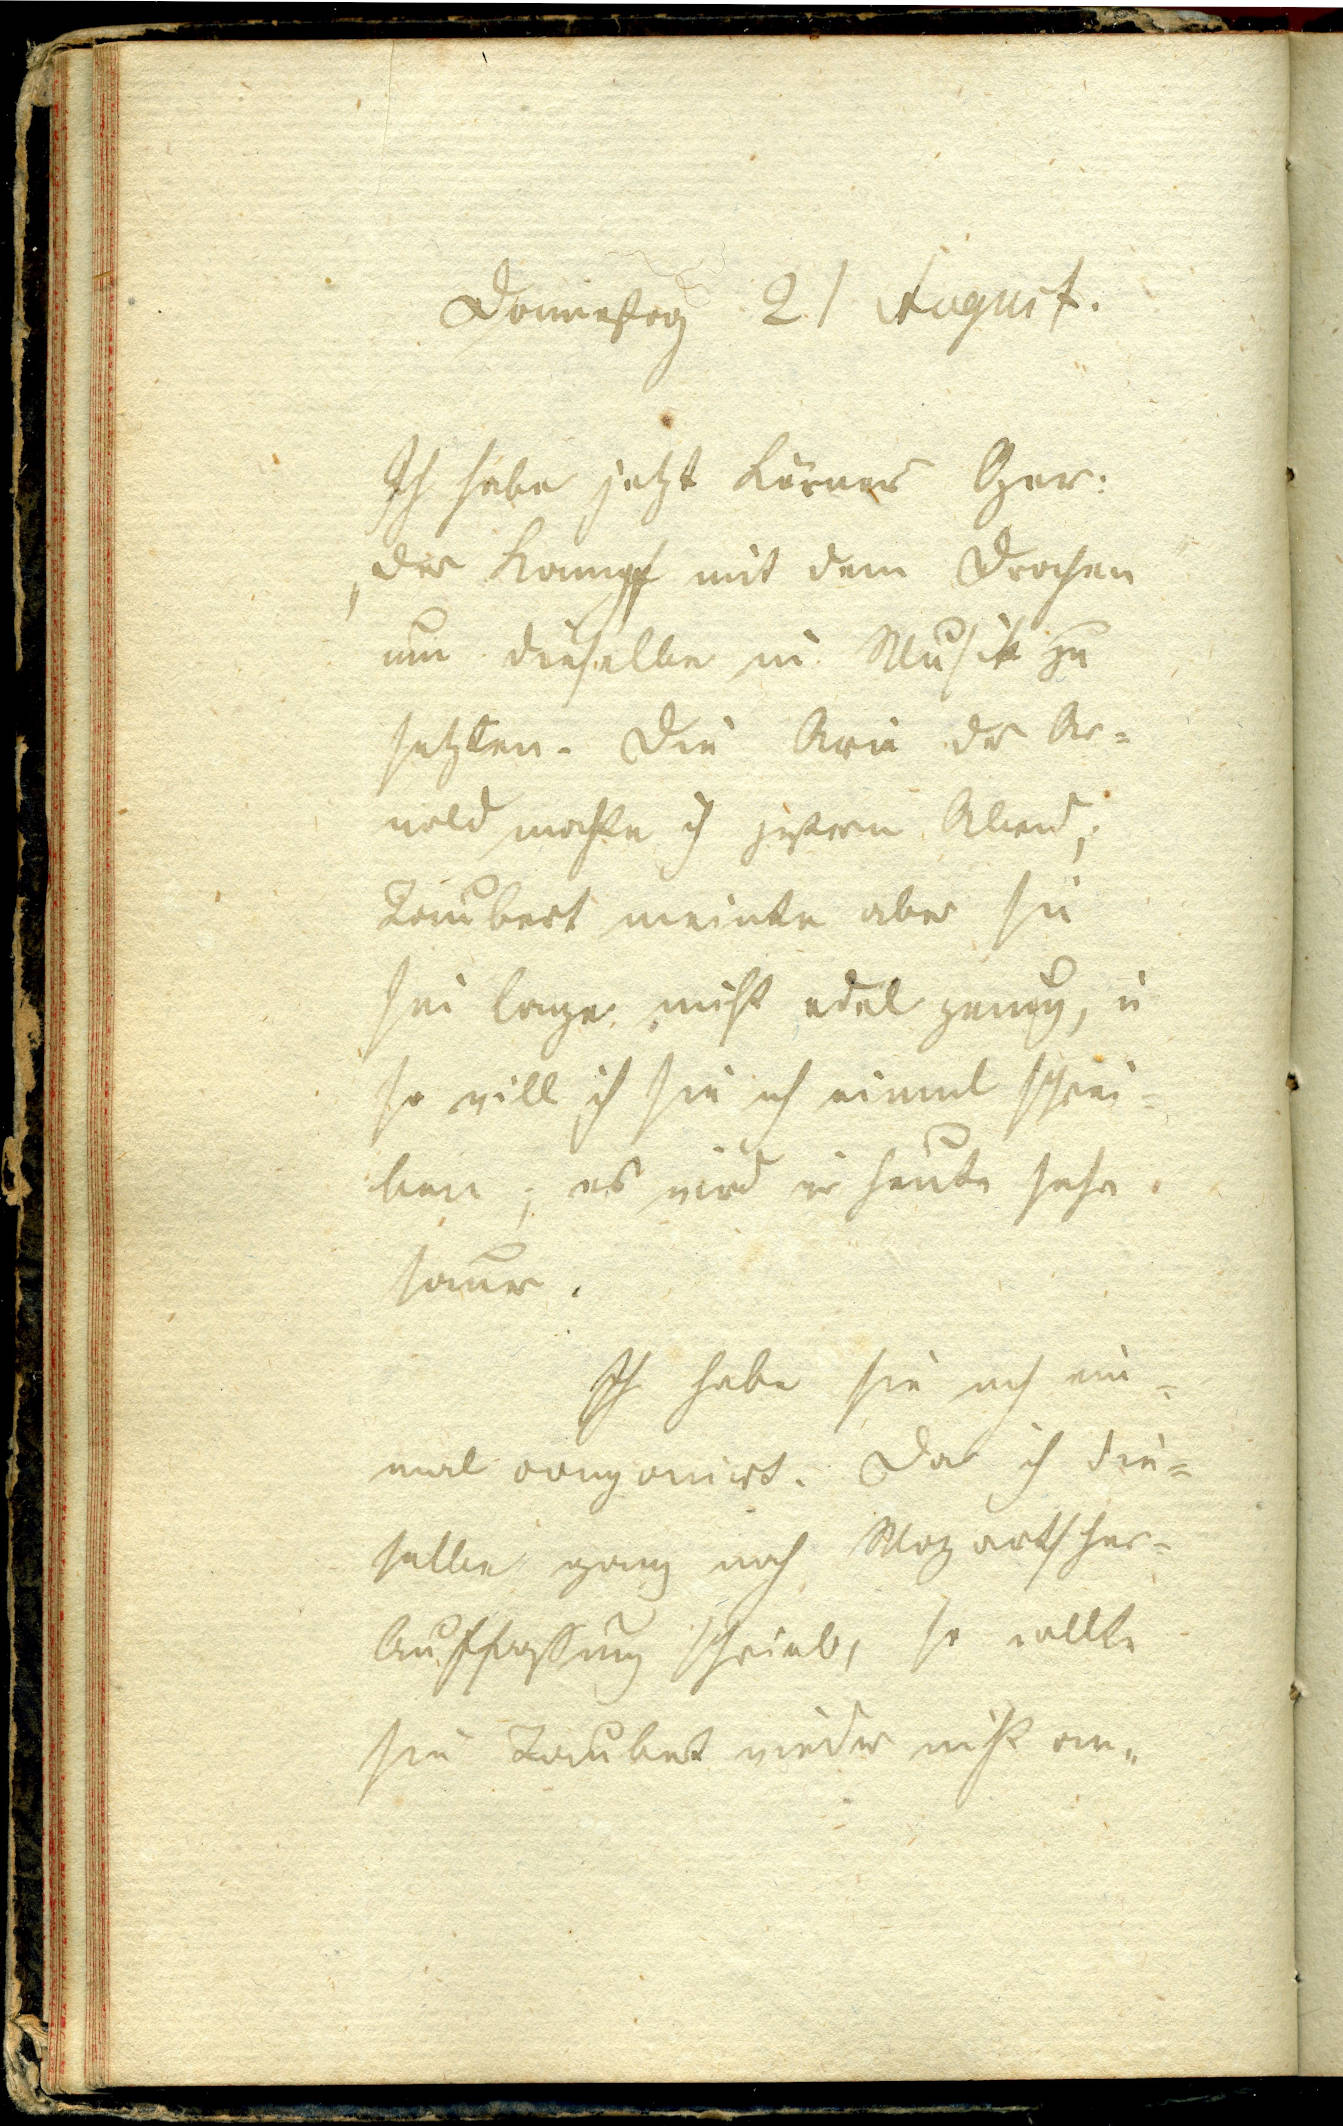 Donnerstag 21 August.
Ich habe jetzt Körners Oper:
„der Kampf mit dem Drachen
um dieselbe in Musik zu
setzten. Die Arie des Ar=
nold machte ich gestern Abend;
Taubert meinte aber sie
sei lange nicht edel genug, u
so will ich sie noch einmal schrei=
ben; es wird mir heute sehr
sauer.
Ich habe sie noch ein=
mal componirt. Da ich die=
selbe ganz nach Mozartscher=
Auffassung schrieb, so wollte
sie Taubert wieder nicht an=